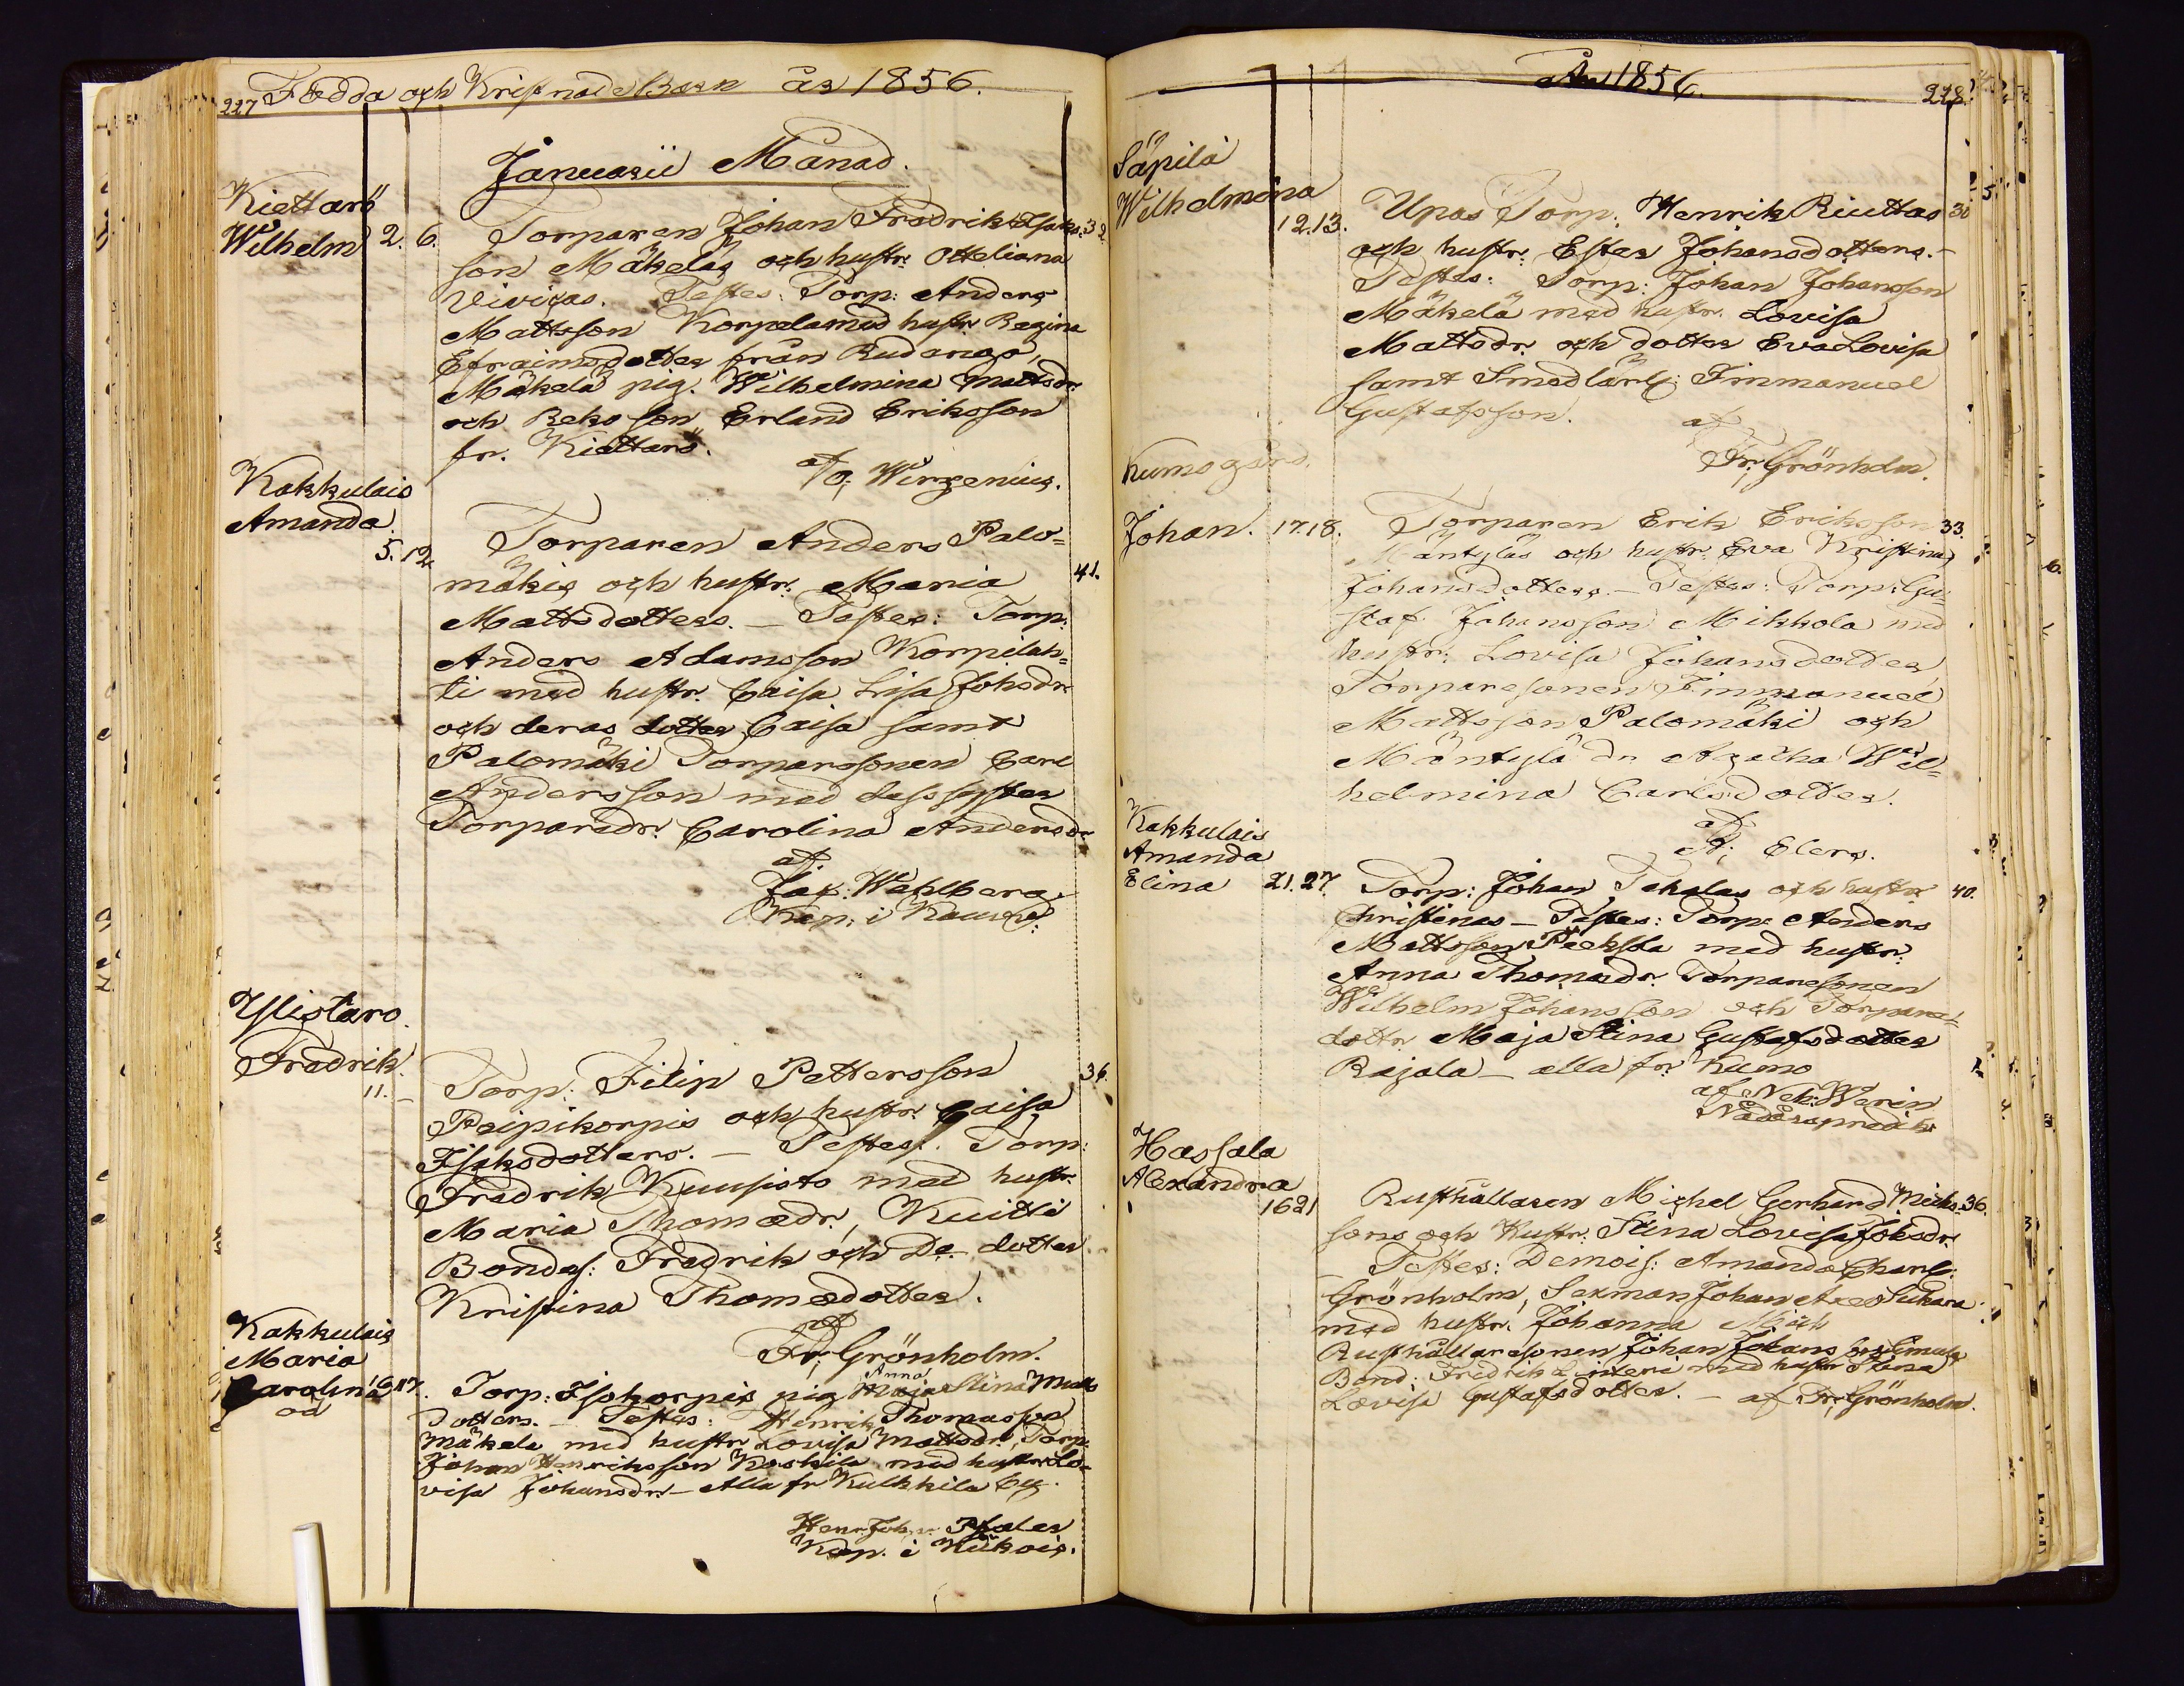 227 Födda och Kristnade Barn år 1856.
Januarii Månad.
Kiettarö
Wilhelm 2. 6. Torparen Johan Fredrik Isaks- 32.
son Mäkeläs och hustr: Otteliana
Vivicas. Testes: Torp: Anders
Mattsson Korpela med hustr Regina
Efraimsdotter från Rudanqo,
Mäkelä pig. Wilhelmina Mattsdr.
och Reko son Erland Eriksson
fr. Kiettarö.
af
O; Wirzenius.
Kakkulais
Amanda
5. 12. Torparen Anders Palo=
mäkis och hustr: Maria 41.
Mattsdotters. – Testes: Torp:
Anders Adamsson Korpilah=
ti med hustr. Caisa Lisa Johsdr
och deras dotter Caisa samt
Palomäki Torparssonen Carl
Andersson med dess syster
Torparedr. Carolina Andersdr
af
Jac: Wahlberg.
Kap: i
Ylistaro
Fredrik
11. – Torp: Filip Pettersson 36.
Peipikorpis och hustr. Caisa
Isaksdotters. – Testes: Torp:
Fredrik Kuusisto med hustr.
Maria Thomædr., Kuitti
Bondes: Fredrik och De dotter
Kristina Thomædotter.
af
Fr; Grönholm.
Kakkulais
Maria
Carolina 16. 17. Torp: Isokorpis pig. Maja Stina Matts
Anna
oä
dotters. – Testes: Henrik Thomasson
Mäkelä med hustr Lovisa Mattsdr, Torp.
Johan Henriksson Koskila med hustr Lo=
visa Johansdr. – Alla fr Kulkkila by.
Henr. Joh.
Kap. i Kiikois.
År 1856. 228.
Säpilä
Wilhelmina
12. 13. Upas Torp. Henrik Riuttas 30
och hustr: Ester Johansdotters. –
Testes: Torp: Johan Johansson
Mäkelä med hustr. Lovisa
Mattsdr. och dotter Eva Lovisa
samt Smedlärl: Immanuel
Gustafsson.
af
Fr; Grönholm.
Kumogård.
Johan. 17. 18. Torparen Erik Eriksson 33.
Mäntyläs och hustr: Eva Kristina
Johansdotters. – Testes: Torp: Gu=
staf Johansson Mikkola med
hustr: Lovisa Johansdotter,
Torparesonen Immanuel
Mattsson Palomäki och
Mäntylä dr Agatha Wil=
helmina Carlsdotter.
af
A; Elers.
Kakkulais
Amanda
Elina 21. 27. Torp: Johan Tekalas och hustr 40.
Christinas – Testes: Torp: Anders
Mattsson med hustr:
Anna Thomædr. Torparesonen
Wilhelm Johansson och Torpare=
dottr Maja Stina Gustafsdotter
Rajala – alla fr. Kumo
af Nek: Warin
Nådårspredik.
Hassala
Alexandra
16 21 Rusthållaren Michel Gerhard Miks- 36.
sons och Hustr: Stina Lovisa Johsdr.
Testes: Demois: Amanda Charl:
Grönholm, Sexman Johan Axel Suhara
med hustr. Johanna Mich
Rusthållaresonen Johan Johansson Simula
Bond. Fredrik med hustr Stina
Lovisa Gustafsdotter. – af Fr; Grönholm.